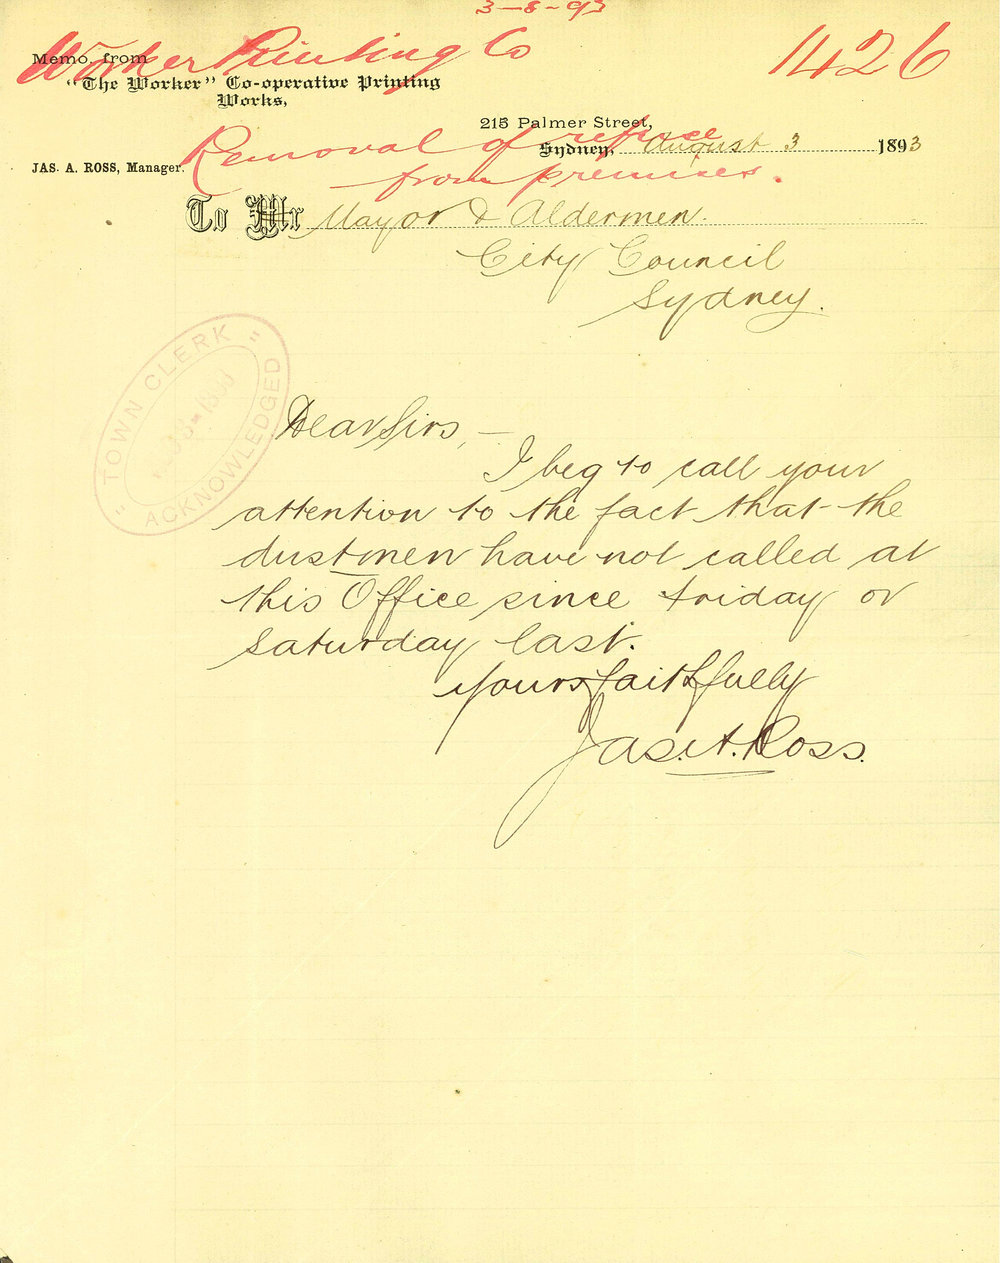 3-8-93
Worker Printing Co
1426
Memo. from
"The Worker" Co-operative Printing
Works,
215 Palmer Street,
Removal of refuse
from premises.
Sydney, August 3 1893
JAS. A. ROSS, Manager.
To Mr Mayor & Aldermen.
City Council
Sydney.
TOWN CLERK
ACKNOWLEDGED
Dear Sirs, —
I beg to call your
attention to the fact that the
dustmen have not called at
this Office since Friday or
Saturday last.
Yours faithfully
Jas. A. Ross.